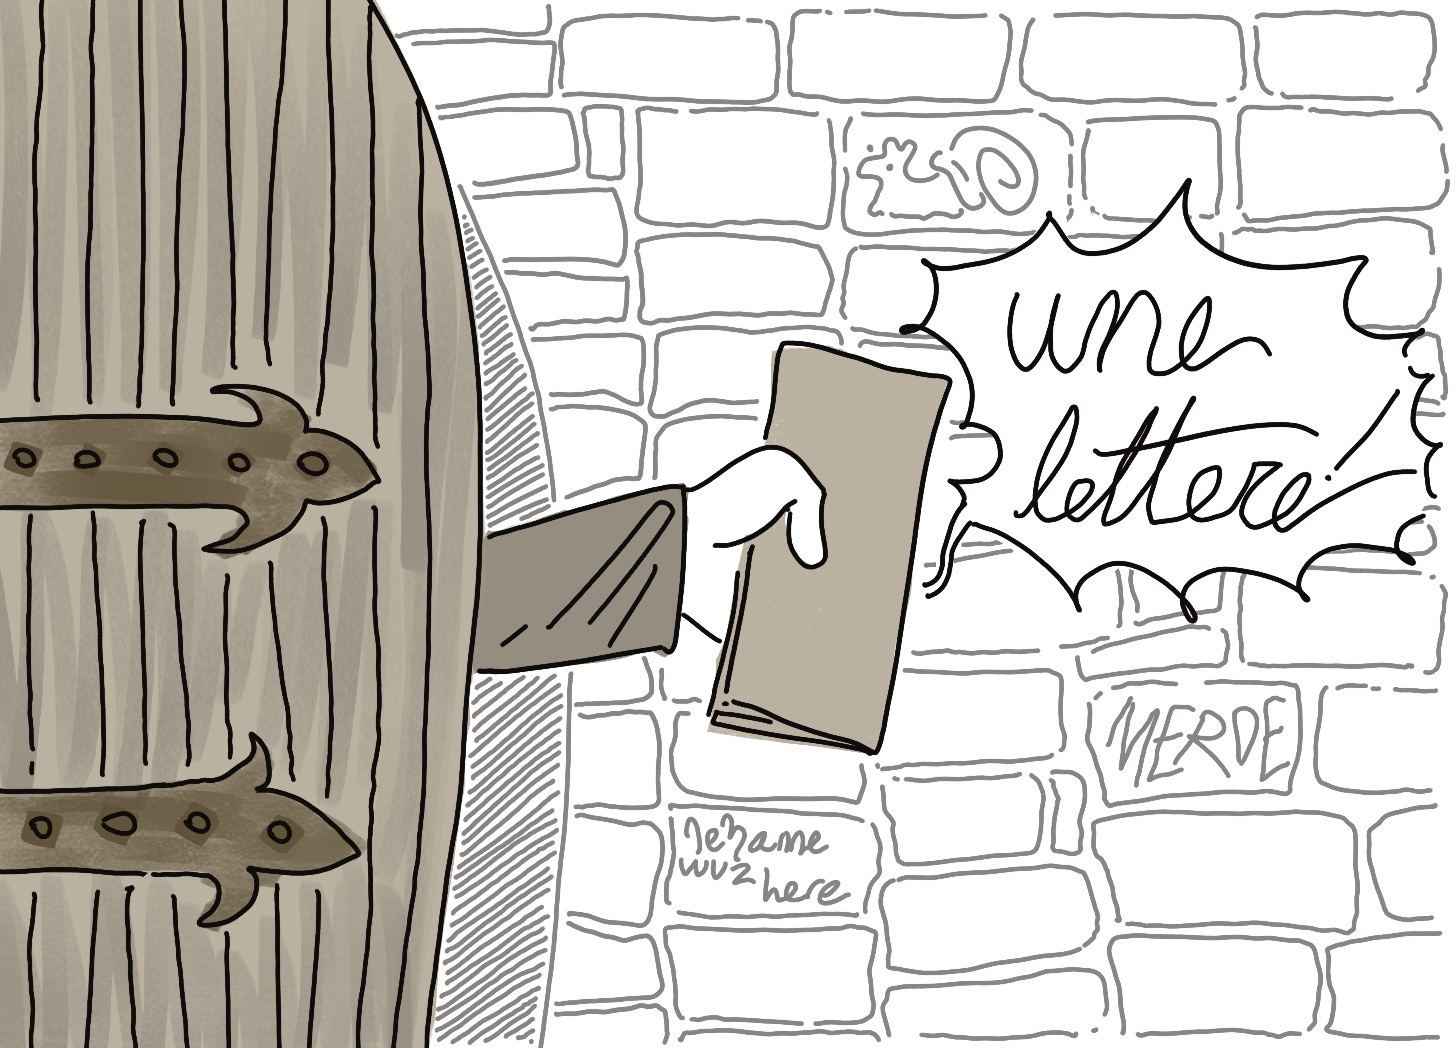 une
lettere!
MERDE
wuz
here